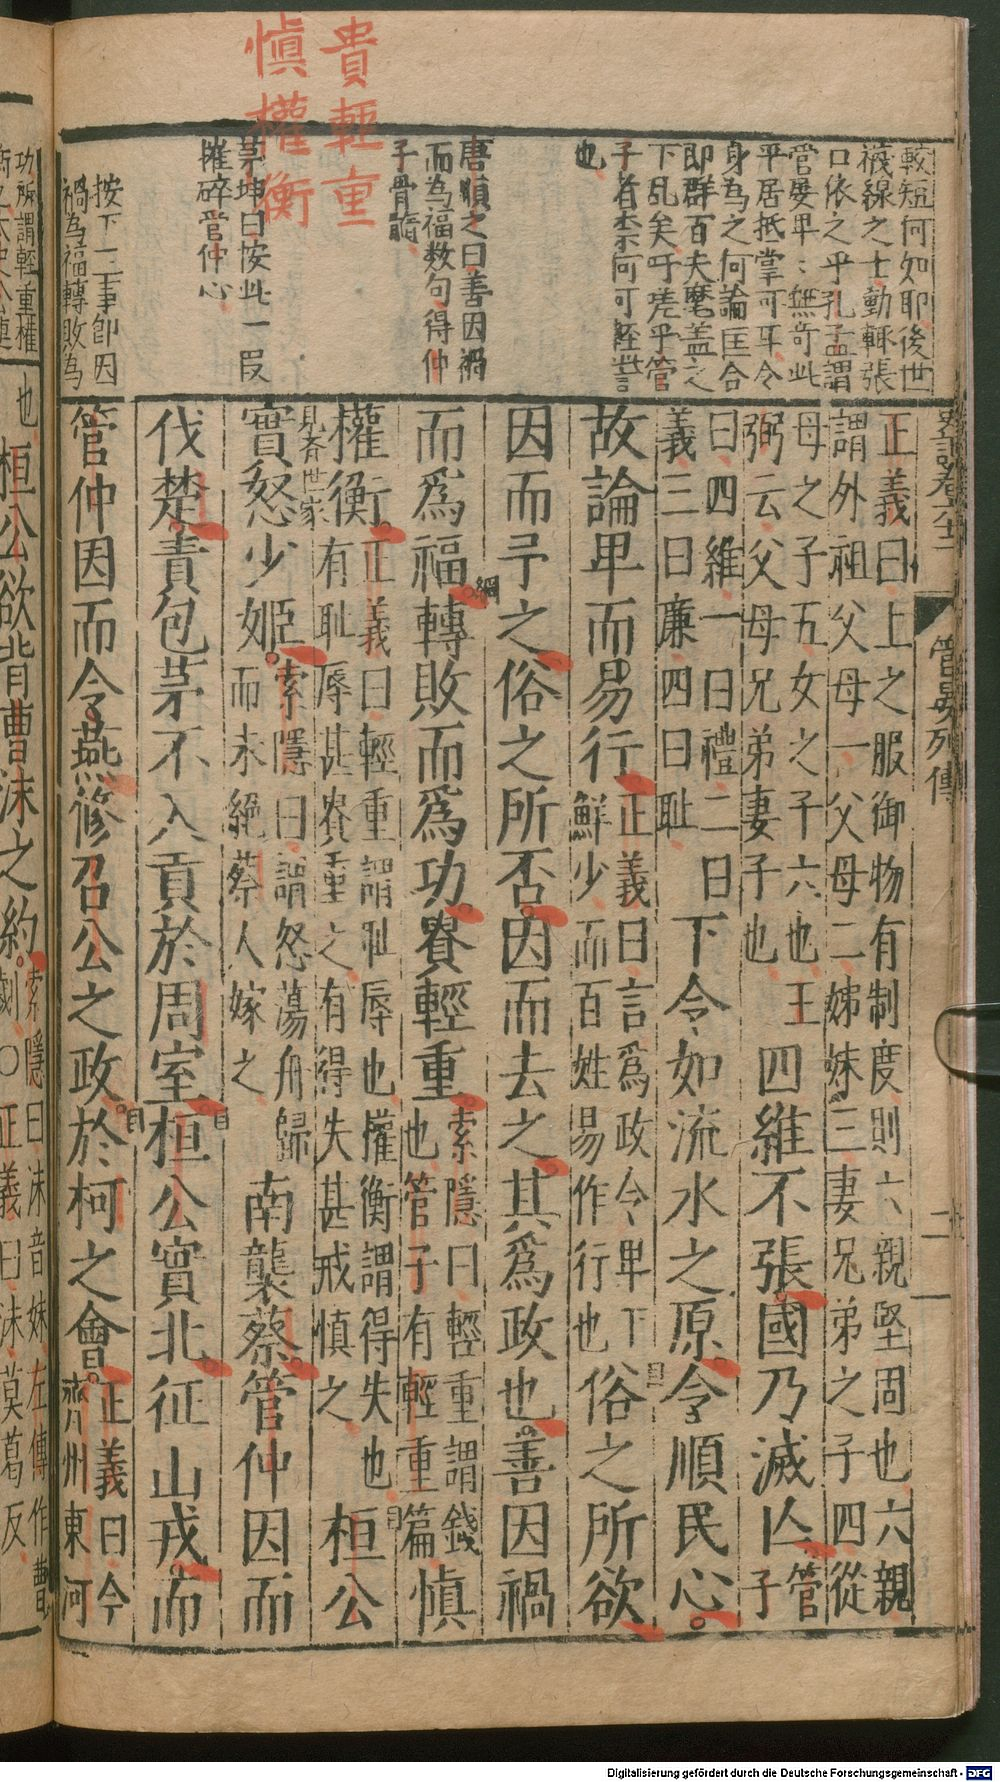 貴輕重
慎權衡
較短何如耶後世
襪線之士動輒張
口依之乎孔孟謂
管晏卑卑無奇此
平居抵掌可耳令
身為之何論匡合
即群百夫麾盖之
下乱矣吁嗟乎管
子者柰何可輕訾
也
唐順之曰善因禍
而為福数句得仲
子骨髓
茅坤曰按此一叚
摧碎管仲心
按下一二事卽因
禍為福轉敗為
管晏列傳
正義曰上之服御物有制度則六親堅固也六親
謂外祖父母一父母二姊妹三妻兄弟之子四從
母之子五女之子六也王
弼云父母兄弟妻子也
四維不張國乃滅亾
管子
曰四維一曰禮二曰
義三曰廉四曰耻
下令如流水之原令順民心
故論卑而易行
正義曰言為政令卑下
鮮少而百姓易作行也
俗之所欲
因而予之俗之所否因而去之其為政也善因禍
而為福轉敗而為功貴輕重
索隱曰輕重謂錢
也管子有輕重篇
慎
權衡
正義曰輕重謂耻辱也權衡謂得失也
有耻辱甚貴重之有得失甚戒慎之
桓公
見齊世家
實怒少姬
索隱曰謂怒蕩舟歸
而未絕蔡人嫁之
南襲蔡管仲因而
伐楚責包茅不入貢於周室桓公實北征山戎而
管仲因而令燕修召公之政於柯之會
正義曰今
齊州東河
功所謂輕重權
也桓公欲背曹沫之約
索隱曰沫音妹左傳作曹
劌〇正義曰沫莫葛反
Digitalisierung gefördert durch die Deutsche Forschungsgemeinschaft - DFG